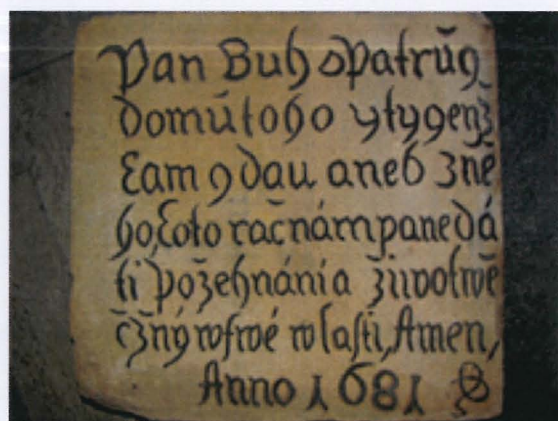 Pan Buh opatrúg
domú toho y ty genž
kam gdau aneb z ně
ho, toto račnám pane dá
ti požehnánía živote wě
čzný w twé wlasti, Amen,
Anno 1681